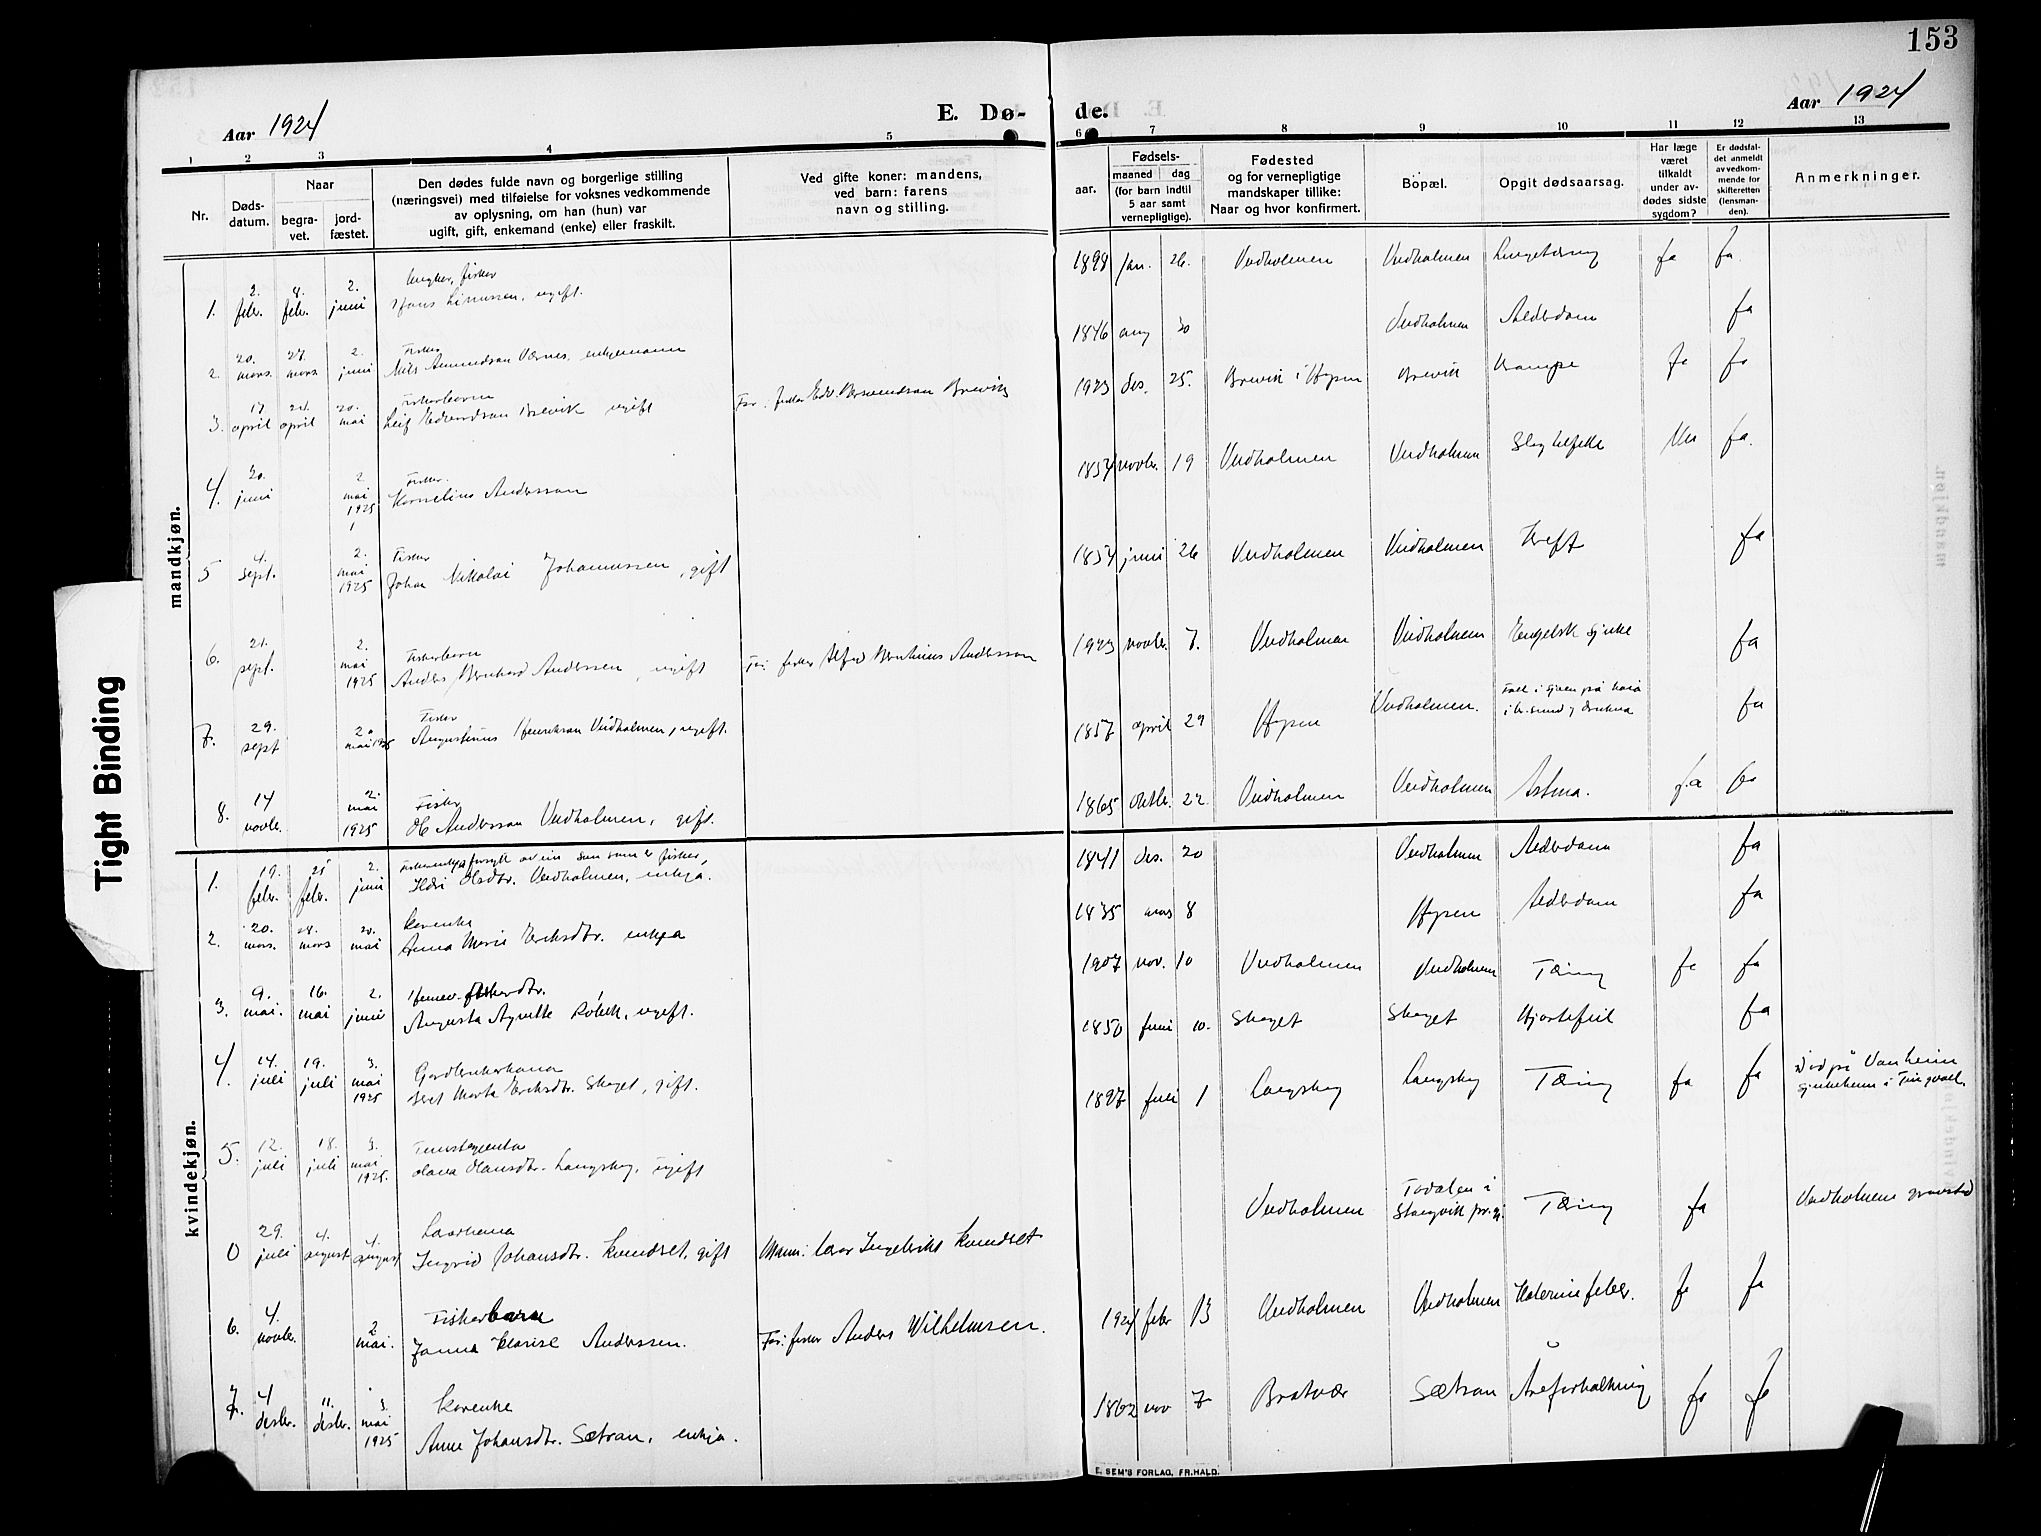 153
Aar 1924
E. Dø-
de.
Aar 1924
1 2 3 4 5 6 7 8 9 10 11 12 13
Nr.
Døds-
datum.
Naar
begra-
vet.
jord-
fæstet.
Den dødes fulde navn og borgerlige stilling
(næringsvei) med tilføielse for voksnes vedkommende
av oplysning, om han (hun) var
ugift, gift, enkemand (enke) eller fraskilt.
Ved gifte koner: mandens,
ved barn: farens
navn og stilling.
aar.
Fødsels-
maaned dag
(for barn indtil
5 aar samt
vernepligtige).
Fødested
og for vernepligtige
mandskaper tillike:
Naar og hvor konfirmert.
Bopæl.
Opgit dødsaarsag.
Har læge
været
tilkaldt
under av-
dødes sidste
sygdom?
Er dødsfal-
det anmeldt
av vedkom-
mende for
skifteretten
(lensman-
den).
Anmerkninger.
mandkjøn.
1. 2. febr. 8. febr. 2. juni Ungkar, fisker
Hans Linussen, ugift. 1898 jan. 26. Veidholmen Veidholmen Lungetæring ja ja.
2. 20. mars 27. mars 2. juni Fisker
Nils Amundsen Værnes, enkjemann 1846 aug 30 Veidholmen Alderdom ja
3. 17 april 24. april 20. mai Fiskerbarn
Leif Edvardsen Brevik ugift Far: fisker Edv. Brevik 1923 des. 25. Brevik i Hopen Brevik Krampe ja ja
4. 20. juni 2. mai 1925 Fisker.
Kornelius Anderssen 1854 novbr. 19 Veidholmen Veidholmen Slagtilfelle Nei ja.
5 4. sept. 2. mai 1925 Fisker
Johan Nikolai Johannessen, gift 1854 juni 26 Veidholmen Veidholmen Kreft ja
6. 21. sept. 2. mai 1925 Fiskerbarn
Anders Bernhard Anderssen, ugift Far: fisker Alfred Anderssen 1923 novbr. 7. Veidholmen Veidholmen Engelsk sjuke ja
7. 29. sept 2. mai 1925 Fisker
Augustinus Henriksen Veidholmen, ugift. 1857 april 29 Hopen Veidholmen. Fall i sjøen på ja
8. 14 novbr. 2. mai 1925 Fisker
Ol Anderssen Veidholmen, gift. 1865 oktbr. 22. Veidholmen Veidholmen Astma. ja ja
kvindekjøn.
1. 19. febr. 25 febr. 2. juni Fiskerenkja forsytt av ein son som er fisker,
Ildri Olsdtr. Veidholmen, enkja. 1841 des. 20 Veidholmen Alderdom ja
2. 20. mars. 28. mars 20. mai Kårenke
Anna Marie Eriksdtr. enkja 1835 mars 8 Hopen Alderdom ja
3. 9. mai. 16. mai 2. juni
Augusta Agnette Røbekk, ugift. 1907 nov. 10 Veidholmen Veidholmen Tæring ja ja
4. 14. juli 19. juli 3. mai 1925 Gardbrukerkona
Beret Marta Eriksdtr. Skaget, gift. 1850 juni 10. Skaget Skaget Hjartefeil ja
5. 12. juli 18. juli 3. mai 1925. Tenestgjenta
Olava Olausdtr. Langskog, ugift 1897 juli 1 Langskog Langskog Tæring ja ja Død på Vonheim
sjukeheim i Tingvoll.
0 29. juli 4. august 4. august
Ingrid Johansdtr. Kvendset, gift Mann: Lars Ingebrikt Kvendset Veidholmen Todalen i
Stangvik pr.gj. Tæring ja Veidholmens gravsted
6. 4. novbr. 2 mai. Fiskerbarn
Janna Klarise Anderssen. Far: fisker Anders Wilhelmsen. 1924 febr 13 Veidholmen Veidholmen ja ja
7. 4 desbr. 11. desbr. 3. mai 1925 Kårenke
Anne Johansdtr. Sætran, enkja. 1862 nov 7 Bratvær Sætran Åreforkalkning ja ja
E. SEM'S FORLAG, FR.HALD.
Tight Binding